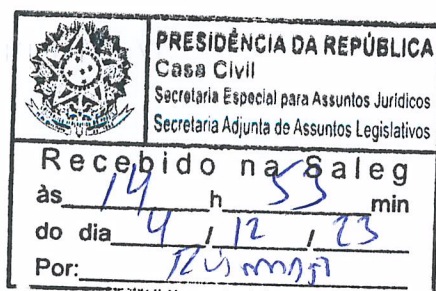 PRESIDÊNCIA DA REPÚBLICA
Casa Civil
Secretaria Especial para Assuntos Jurídicos
Secretaria Adjunta de Assuntos Legislativos
Recebido na Saleg
às 14 h 53 min
do dia 4 / 12 / 23
Por: